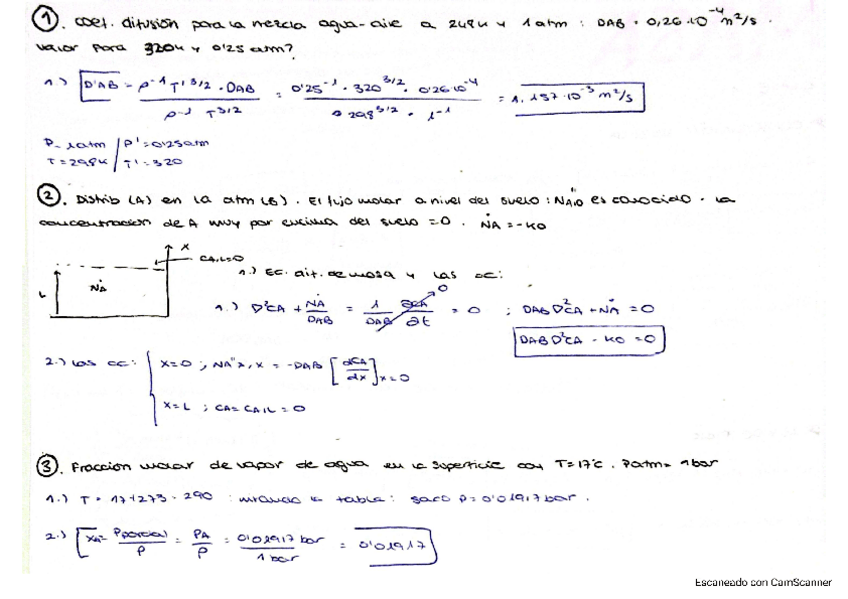 ①. Coef. difusión para la mezcla agua-aire a 298K y 1 atm : DAB = 0,26·10⁻⁴ m²/s.
Valor para 320K y 0'25 atm?
1.) D'AB = P'⁻¹ T'³/² · DAB / P⁻¹ T³/² = 0'25⁻¹ · 320³/² · 0'26·10⁻⁴ / 298³/² · 1⁻¹ = 1.157·10⁻³ m²/s
P= 1atm / P'=0'25atm
T=298K / T'=320
②. Distrib (A) en la atm (B). El flujo molar a nivel del suelo : N̈A,0 es conocido. La
concentracion de A muy por encima del suelo =0. ṄA = -K0
x
CA,L=0
L
ṄA
1.) Ec. dif. de masa y las cc:
1.) ∇²CA + ṄA/DAB = 1/DAB ∂CA/∂t 0 = 0 ; DAB ∇²CA + ṄA = 0
DAB ∇²CA - K0 = 0
2.) Las cc: x=0 ; NA"x,x = -DAB [dCA/dx]x=0
x=L ; CA = CA,L = 0
③. Fracción molar de vapor de agua en la superficie con T=17ºC. Patm= 1bar
1.) T = 17+273 = 290 : mirando la tabla : saco P=0'01917 bar.
2.) XA= Pparcial/P = PA/P = 0'01917 bar/1 bar = 0'01917
Escaneado con CamScanner